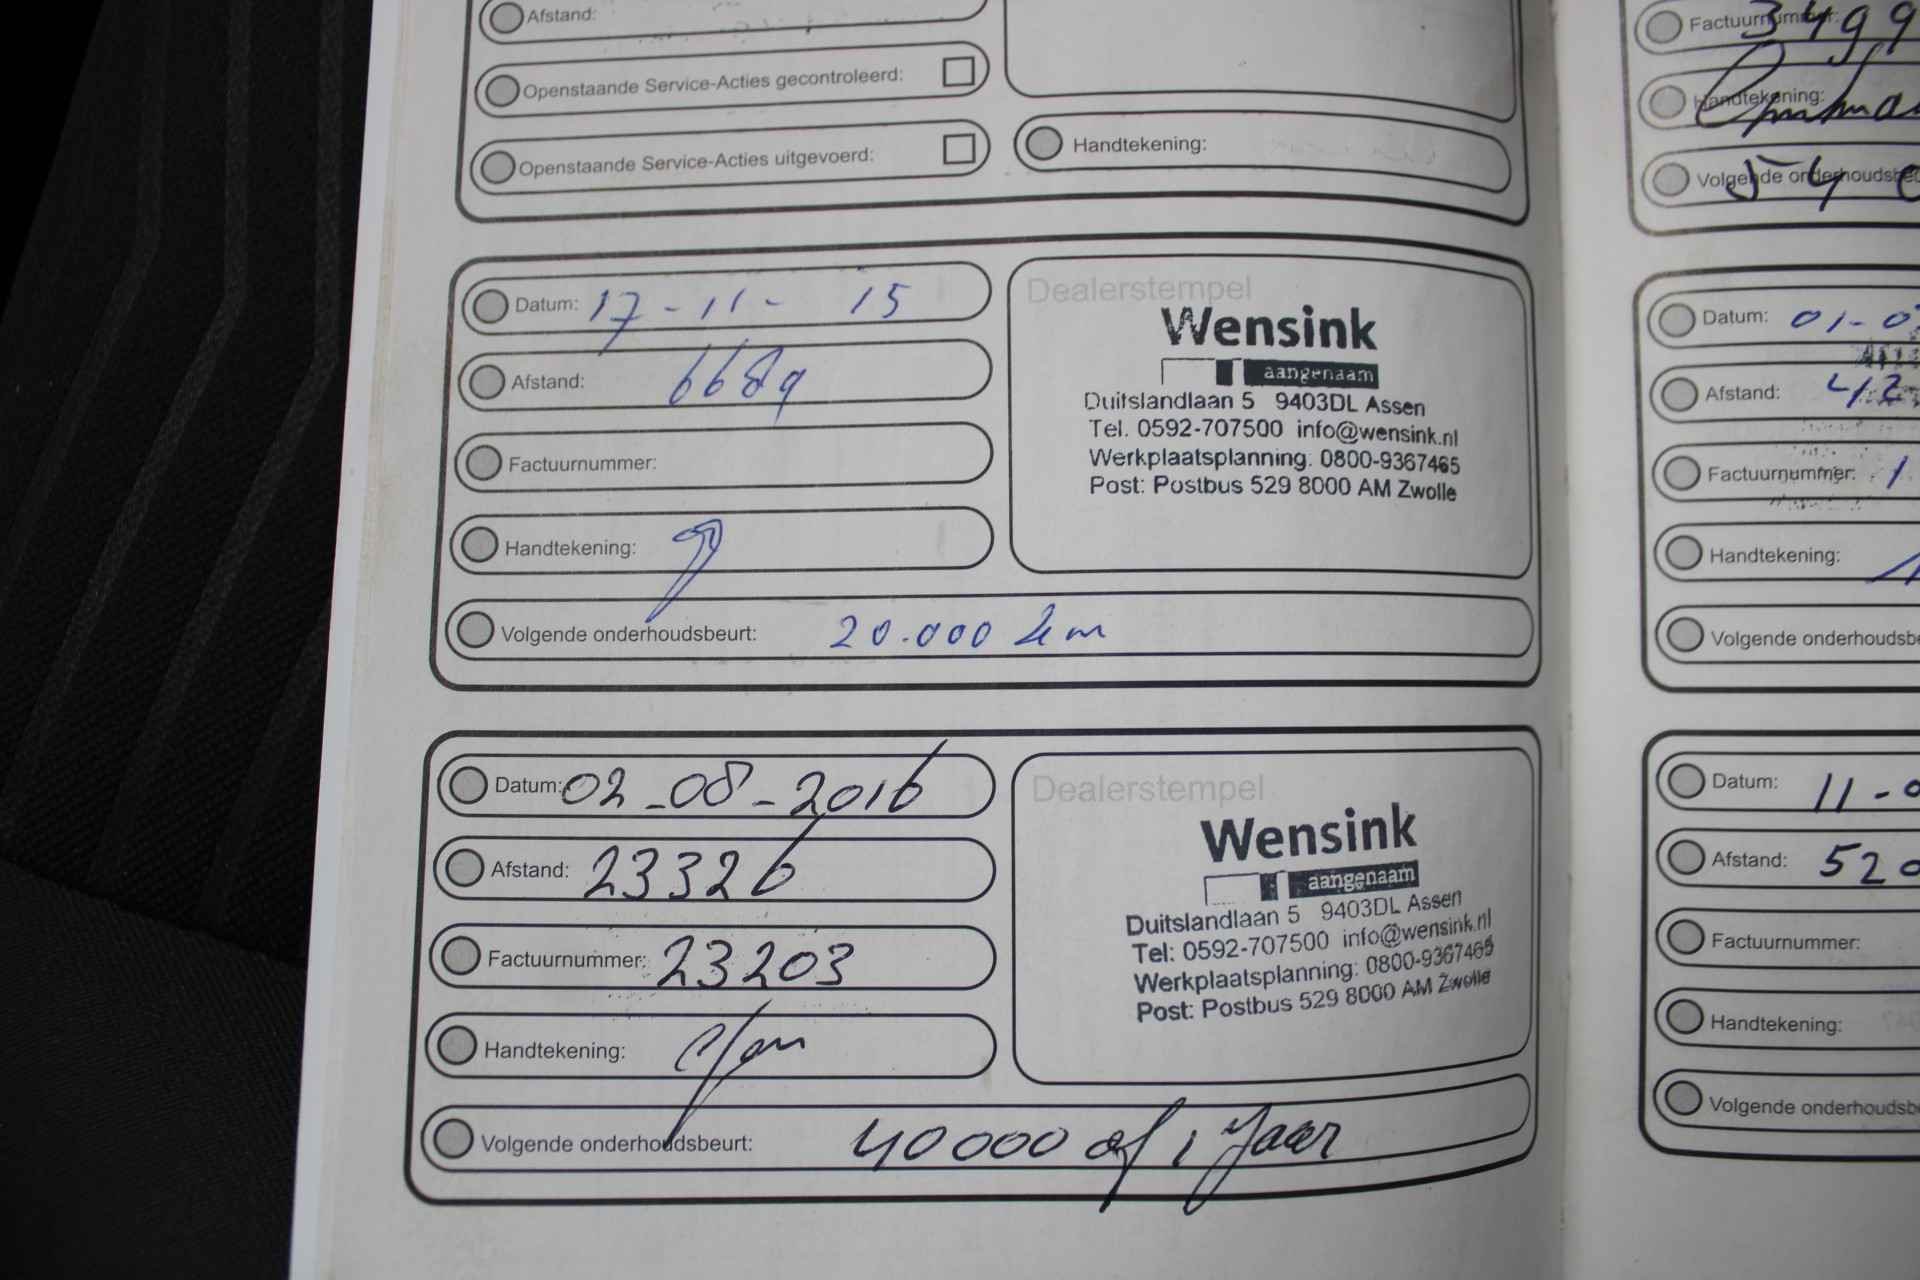 Afstand:
Openstaande Service-Acties gecontroleerd:
Openstaande Service-Acties uitgevoerd:
Handtekening:
Datum: 17-11- 15
Afstand: 6689
Factuurnummer:
Handtekening:
Volgende onderhoudsbeurt: 20.000 km
Dealerstempel
Wensink
aangenaam
Duitslandlaan 5 9403DL Assen
Tel. 0592-707500 info@wensink.nl
Werkplaatsplanning: 0800-9367465
Post: Postbus 529 8000 AM Zwolle
Datum: 02-08-2016
Afstand: 23326
Factuurnummer: 23203
Handtekening:
Volgende onderhoudsbeurt: 40000 of 1 Jaar
Dealerstempel
Wensink
aangenaam
Duitslandlaan 5 9403DL Assen
Tel: 0592-707500 info@wensink.nl
Werkplaatsplanning: 0800-9367465
Post: Postbus 529 8000 AM Zwolle
Factuurnummer: 3499
Handtekening:
Volgende
Datum: 01-0
Afstand: 412
Factuurnummer: 1
Handtekening:
Volgende
Datum: 11-0
Afstand: 520
Factuurnummer:
Handtekening:
Volgende